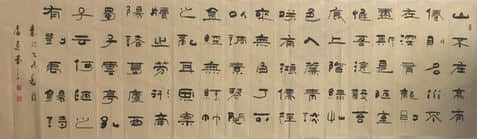 山不在高有
僊則名水不
在深有龍則
靈斯是陋室
惟吾德馨苔
痕上階綠草
色入簾青談
笑有鴻儒往
來無白丁可
以調素琴閱
金經無絲竹
之亂耳無案
牘之勞形南
陽諸葛廬西
蜀子雲亭孔
子云何陋之
有劉禹錫詩